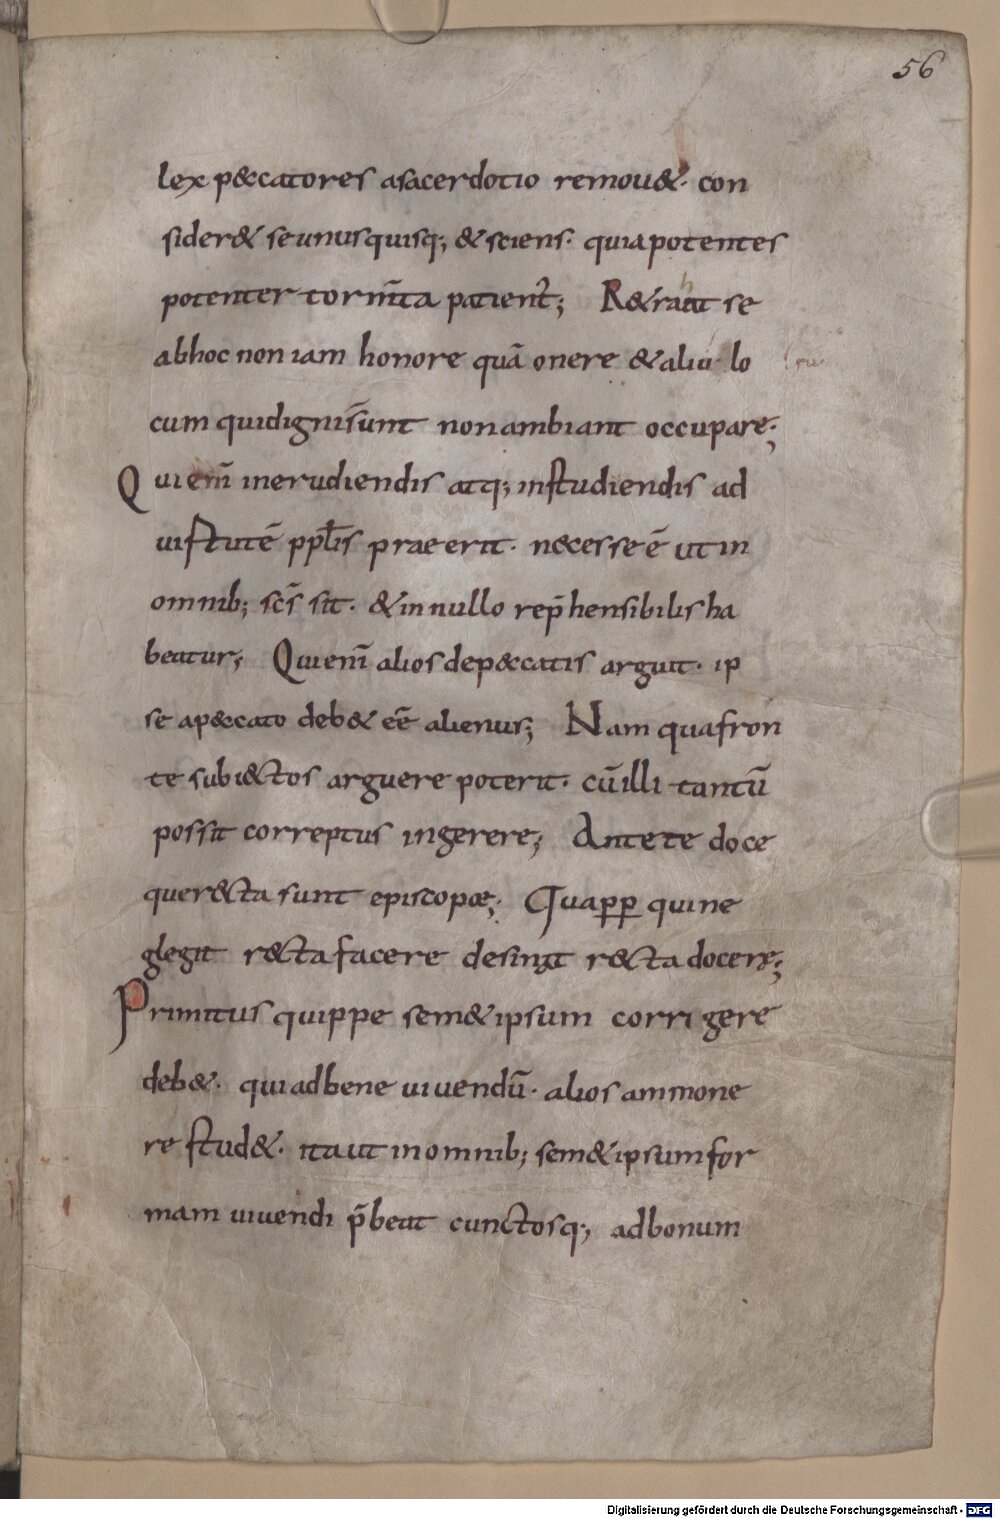 56
lex p&ccatores asacerdotio remou&· con
sider& seunusquisq; & sciens· quiapotentes
potenter torm̄ta patient̄; R&rahat se
abhoc non iam honore quā onere & aliu lo
cum quidigni sunt nonambiant occupare;
Qui enī inerudiendis atq; instudiendis ad
uirtutē pplīs praeerit· n&cesse ē ut in
omnib; scs̄ sit· & in nullo rep̄hensibilis ha
beatur; Qui enī alios dep&ccatis arguit· ip
se ap&ccato deb& eē alienus; Nam quafron
te subi&ctos arguere poterit· cū illi tantū
possit correptus ingerere; Ante te doce
quer&cta sunt episcopæ; Quapp quine
glegit r&cta facere desinat r&cta docere;
Primitus quippe sem&ipsum corrigere
deb&· qui adbene uiuendū· alios ammone
re stud&· ita ut in omnib; sem&ipsum for
mam uiuendi p̄beat cunctosq; adbonum
Digitalisierung gefördert durch die Deutsche Forschungsgemeinschaft - DFG